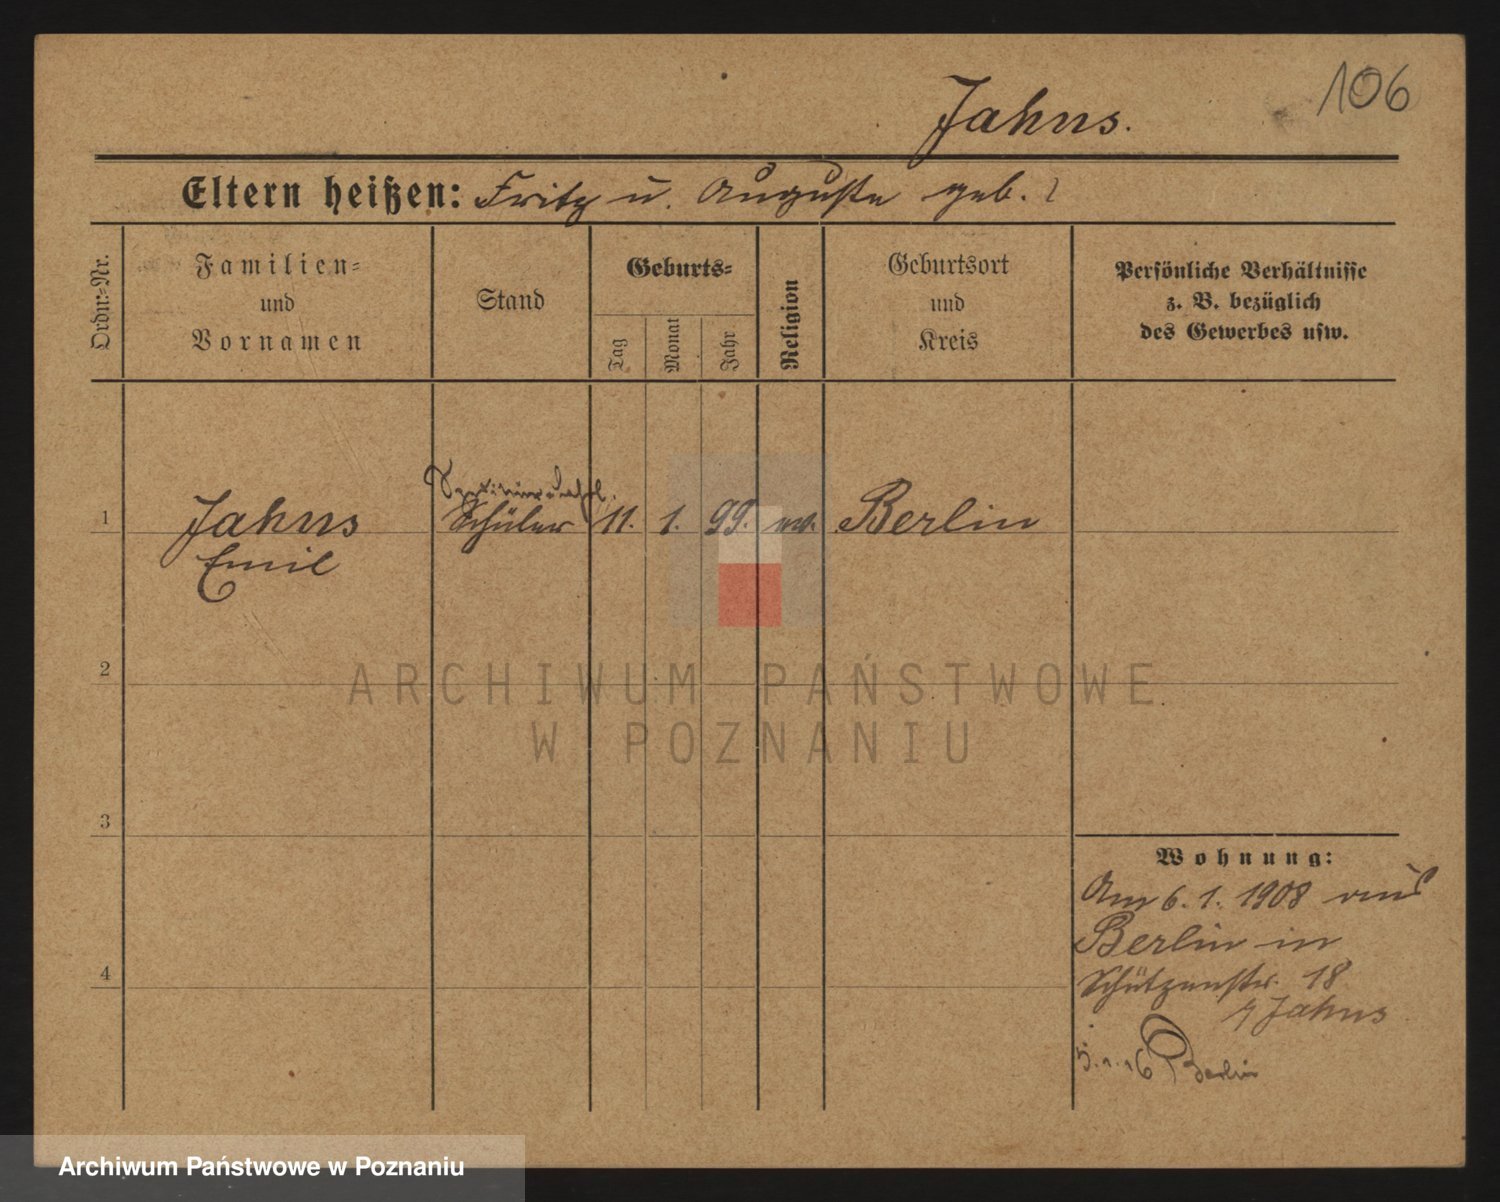 106
Jahns.
Eltern heißen: Fritz u. Auguste geb. ?
Ordn.-Nr.
Familien-
und
Vornamen
Stand
Geburts-
Tag
Monat
Jahr
Religion
Geburtsort
und
Kreis
Persönliche Verhältnisse
z. B. bezüglich
des Gewerbes usw.
1 Jahns Schüler 11. 1. 99. ev. Berlin
Emil
2
ARCHIWUM PAŃSTWOWE
W POZNANIU
3
Wohnung:
Am 6. 1. 1908 aus
Berlin in
4
Schützenstr. 18
Jahns
5. 1. 16 Berlin
Archiwum Państwowe w Poznaniu